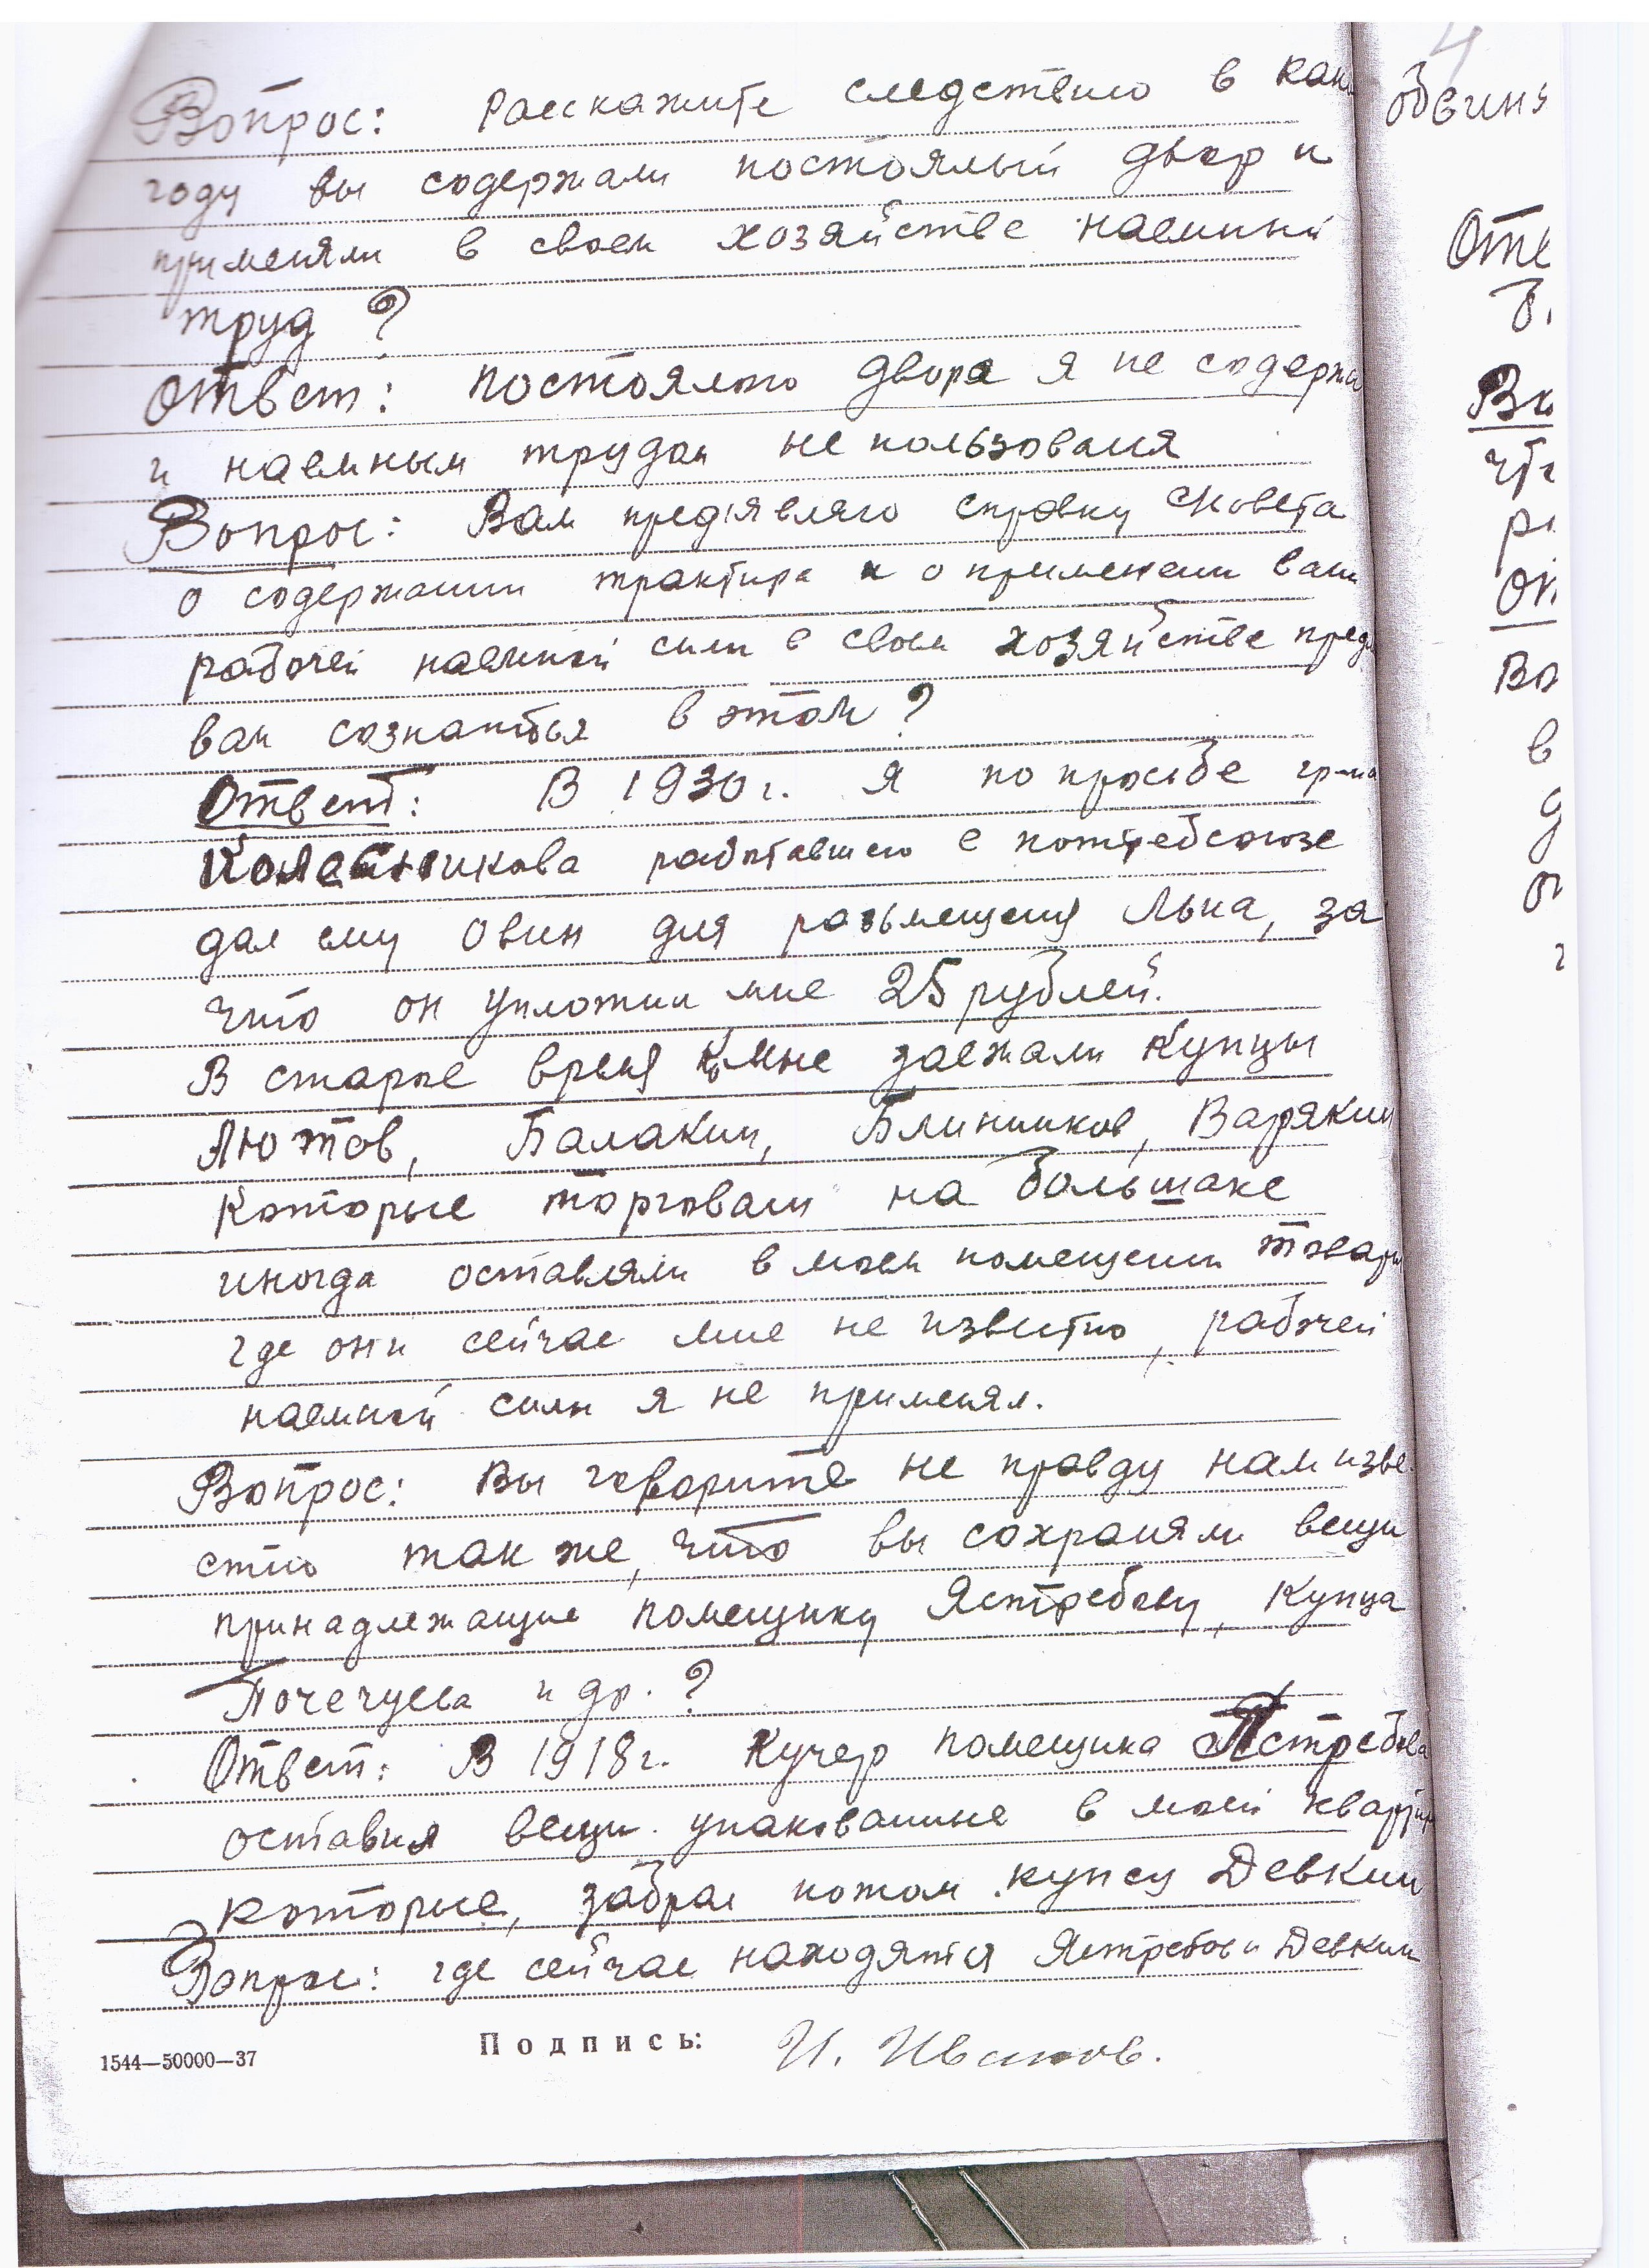 4
Вопрос: Расскажите следствию в как
году вы содержали постоялый двор и
применяли в своем хозяйстве наемный
труд?
Ответ: постоялого двора я не содержа
и наемным трудом не пользовался
Вопрос: Вам предъявляю справку с/совета
о содержании трактира и о применении вами
рабочей наемной силы в своем хозяйстве пред
вам сознаться в этом?
Ответ: В 1930 г. я по просьбе гр-на
работавшего в потребсоюзе
дал ему овин для размещения льна, за
что он уплотил мне 25 рублей.
В старое время ко мне заезжали купцы
Лютов, Балакин, Блинников, Варякин
которые торговали на большаке
иногда оставляли в моем помещении товары
где они сейчас мне не известно, рабочей
наемной силы я не применял.
Вопрос: Вы говорите не правду нам изве
стно так же, что вы сохраняли вещи
принадлежащие помещику Ястребову, купца
Почечуева и др.?
Ответ: В 1918 г. кучер помещика Ястребова
оставил вещи упакованные в моей квартир
которые, забрал потом купец Девкин
Вопрос: где сейчас находятся Ястребов и Девкин
Подпись: И. Иванов.
1544—50000—37
обвиня
Отве
Во
что
Во
в